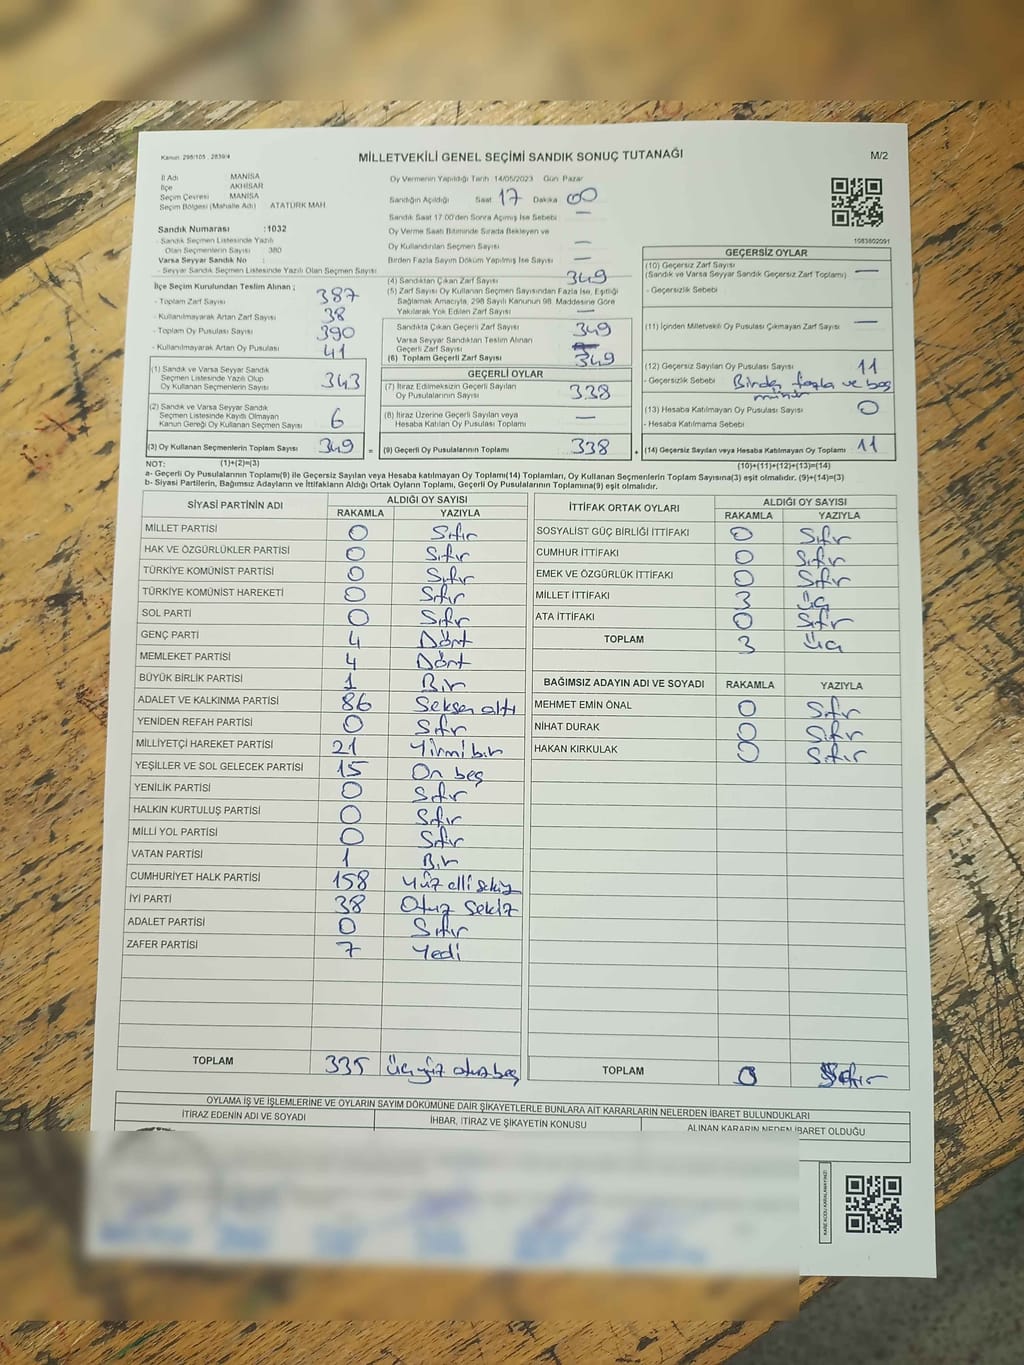 Kanun: 298/105 , 2839/4
MİLLETVEKİLİ GENEL SEÇİMİ SANDIK SONUÇ TUTANAĞI
M/2
İl Adı MANİSA
İlçe AKHİSAR
Seçim Çevresi MANİSA
Seçim Bölgesi (Mahalle Adı) ATATÜRK MAH
Sandık Numarası :1032
- Sandık Seçmen Listesinde Yazılı
Olan Seçmenlerin Sayısı : 380
Varsa Seyyar Sandık No :
- Seyyar Sandık Seçmen Listesinde Yazılı Olan Seçmen Sayısı
İlçe Seçim Kurulundan Teslim Alınan ;
- Toplam Zarf Sayısı 387
- Kullanılmayarak Artan Zarf Sayısı 38
- Toplam Oy Pusulası Sayısı 390
- Kullanılmayarak Artan Oy Pusulası 41
(1) Sandık ve Varsa Seyyar Sandık
Seçmen Listesinde Yazılı Olup
Oy Kullanan Seçmenlerin Sayısı 343
(2) Sandık ve Varsa Seyyar Sandık
Seçmen Listesinde Kayıtlı Olmayan
Kanun Gereği Oy Kullanan Seçmen Sayısı 6
(3) Oy Kullanan Seçmenlerin Toplam Sayısı 349 =
Oy Vermenin Yapıldığı Tarih 14/05/2023 Gün Pazar
Sandığın Açıldığı Saat 17 Dakika 00
Sandık Saat 17.00'den Sonra Açımış İse Sebebi : —
Oy Verme Saati Bitiminde Sırada Bekleyen ve
Oy Kullandırılan Seçmen Sayısı —
Birden Fazla Sayım Döküm Yapılmış İse Sayısı —
(4) Sandıktan Çıkan Zarf Sayısı 349
(5) Zarf Sayısı Oy Kullanan Seçmen Sayısından Fazla İse, Eşitliği
Sağlamak Amacıyla, 298 Sayılı Kanunun 98. Maddesine Göre
Yakılarak Yok Edilen Zarf Sayısı —
Sandıkta Çıkan Geçerli Zarf Sayısı 349
Varsa Seyyar Sandıktan Teslim Alınan
Geçerli Zarf Sayısı
(6) Toplam Geçerli Zarf Sayısı 349
GEÇERLİ OYLAR
(7) İtiraz Edilmeksizin Geçerli Sayılan
Oy Pusulalarının Sayısı 338
(8) İtiraz Üzerine Geçerli Sayılan veya
Hesaba Katılan Oy Pusulası Toplamı —
(9) Geçerli Oy Pusulalarının Toplamı 338 +
1083802091
GEÇERSİZ OYLAR
(10) Geçersiz Zarf Sayısı
(Sandık ve Varsa Seyyar Sandık Geçersiz Zarf Toplamı) —
- Geçersizlik Sebebi
(11) İçinden Milletvekili Oy Pusulası Çıkmayan Zarf Sayısı —
(12) Geçersiz Sayılan Oy Pusulası Sayısı 11
- Geçersizlik Sebebi Birden fazla ve boş
mühür
(13) Hesaba Katılmayan Oy Pusulası Sayısı 0
- Hesaba Katılmama Sebebi
(14) Geçersiz Sayılan veya Hesaba Katılmayan Oy Toplamı 11
NOT: (1)+(2)=(3) (10)+(11)+(12)+(13)=(14)
a- Geçerli Oy Pusulalarının Toplamı(9) ile Geçersiz Sayılan veya Hesaba katılmayan Oy Toplamı(14) Toplamları, Oy Kullanan Seçmenlerin Toplam Sayısına(3) eşit olmalıdır. (9)+(14)=(3)
b- Siyasi Partilerin, Bağımsız Adayların ve İttifakların Aldığı Ortak Oyların Toplamı, Geçerli Oy Pusulalarının Toplamına(9) eşit olmalıdır.
SİYASİ PARTİNİN ADI ALDIĞI OY SAYISI
RAKAMLA YAZIYLA
MİLLET PARTİSİ 0 Sıfır
HAK VE ÖZGÜRLÜKLER PARTİSİ 0 Sıfır
TÜRKİYE KOMÜNİST PARTİSİ 0 Sıfır
TÜRKİYE KOMÜNİST HAREKETİ 0 Sıfır
SOL PARTİ 0 Sıfır
GENÇ PARTİ 4 Dört
MEMLEKET PARTİSİ 4 Dört
BÜYÜK BİRLİK PARTİSİ 1 Bir
ADALET VE KALKINMA PARTİSİ 86 Seksen altı
YENİDEN REFAH PARTİSİ 0 Sıfır
MİLLİYETÇİ HAREKET PARTİSİ 21 Yirmi bir
YEŞİLLER VE SOL GELECEK PARTİSİ 15 On beş
YENİLİK PARTİSİ 0 Sıfır
HALKIN KURTULUŞ PARTİSİ 0 Sıfır
MİLLİ YOL PARTİSİ 0 Sıfır
VATAN PARTİSİ 1 Bir
CUMHURİYET HALK PARTİSİ 158 Yüz elli sekiz
İYİ PARTİ 38 Otuz Sekiz
ADALET PARTİSİ 0 Sıfır
ZAFER PARTİSİ 7 Yedi
TOPLAM 335 Üç yüz otuz beş
İTTİFAK ORTAK OYLARI ALDIĞI OY SAYISI
RAKAMLA YAZIYLA
SOSYALİST GÜÇ BİRLİĞİ İTTİFAKI 0 Sıfır
CUMHUR İTTİFAKI 0 Sıfır
EMEK VE ÖZGÜRLÜK İTTİFAKI 0 Sıfır
MİLLET İTTİFAKI 3 Üç
ATA İTTİFAKI 0 Sıfır
TOPLAM 3 Üç
BAĞIMSIZ ADAYIN ADI VE SOYADI RAKAMLA YAZIYLA
MEHMET EMİN ÖNAL 0 Sıfır
NİHAT DURAK 0 Sıfır
HAKAN KIRKULAK 0 Sıfır
TOPLAM 0 Sıfır
OYLAMA İŞ VE İŞLEMLERİNE VE OYLARIN SAYIM DÖKÜMÜNE DAİR ŞİKAYETLERLE BUNLARA AİT KARARLARIN NELERDEN İBARET BULUNDUKLARI
İTİRAZ EDENİN ADI VE SOYADI İHBAR, İTİRAZ VE ŞİKAYETİN KONUSU ALINAN KARARIN NEDEN İBARET OLDUĞU